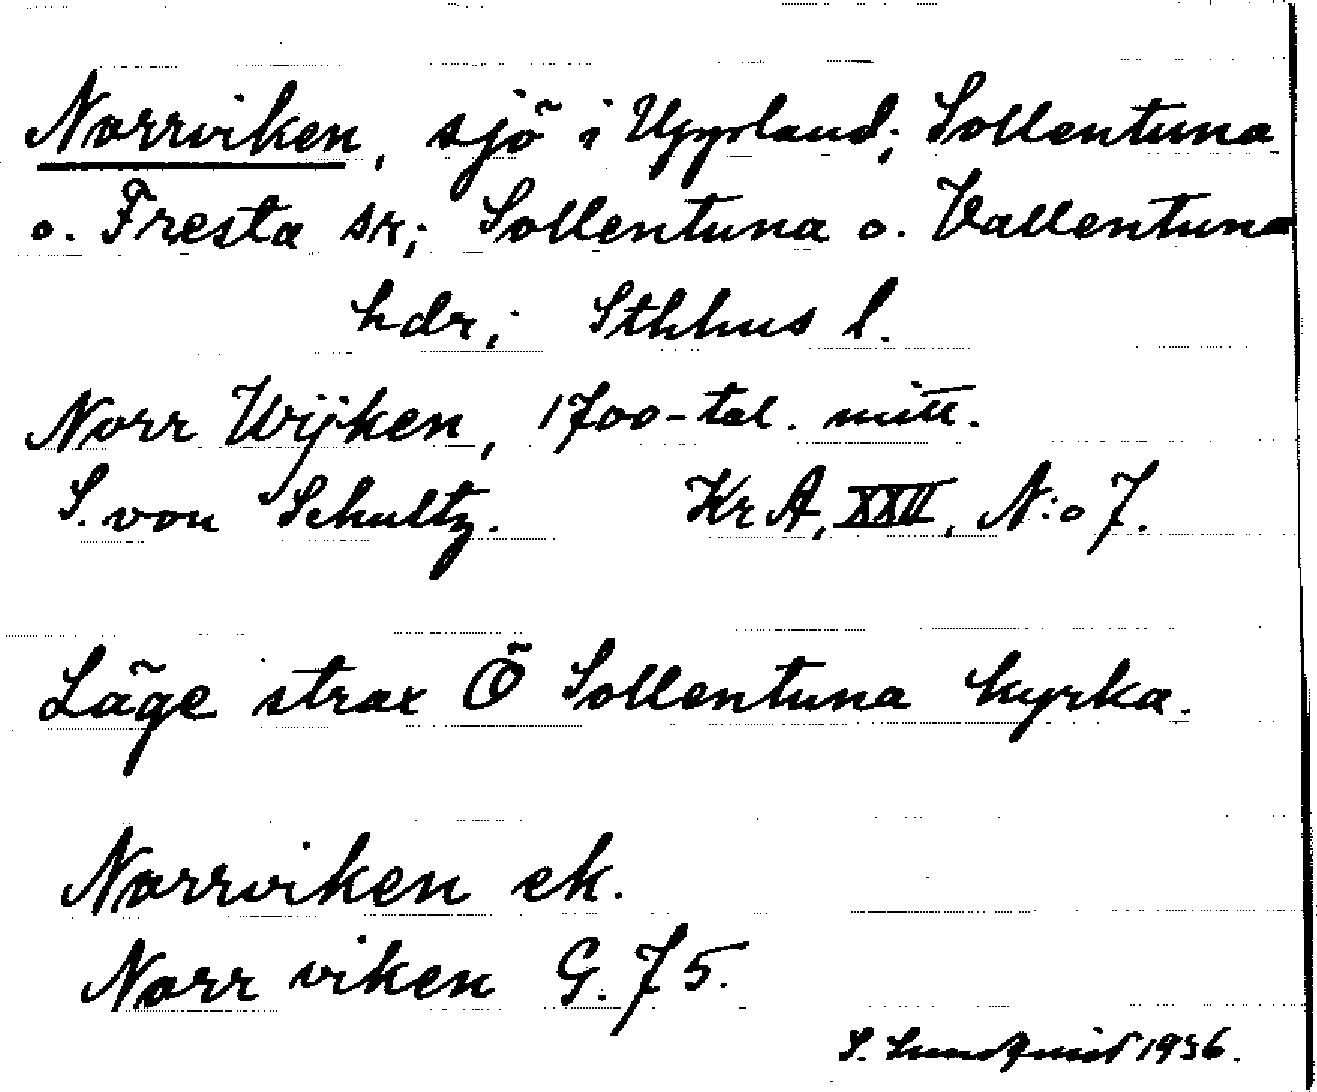 Norrviken, sjö i Uppland; Sollentuna
o. Fresta sr; Sollentuna o. Vallentuna
hdr; Sthlms l.
Norr Wijken, 1700-tal. mitt.
S. von Schultz. KrA, XXII, N:o 7.
Läge strax Ö Sollentuna kyrka.
Norrviken ek.
Norr viken G. 75.
S. Lundqvist 1936.